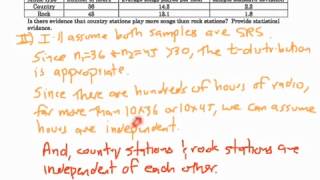 Country 36 14.3 2.2
Rock 45 13.1 1.8
Is there evidence that country stations play more songs than rock stations? Provide statistical
evidence.
II) I: I assume both samples are SRS.
Since n₁=36 + n₂=45 >30, the t-distribution
is appropriate.
Since there are hundreds of hours of radio,
far more than 10×36 or 10×45, we can assume
hours are independent.
And, country stations & rock stations are
independent of each other.